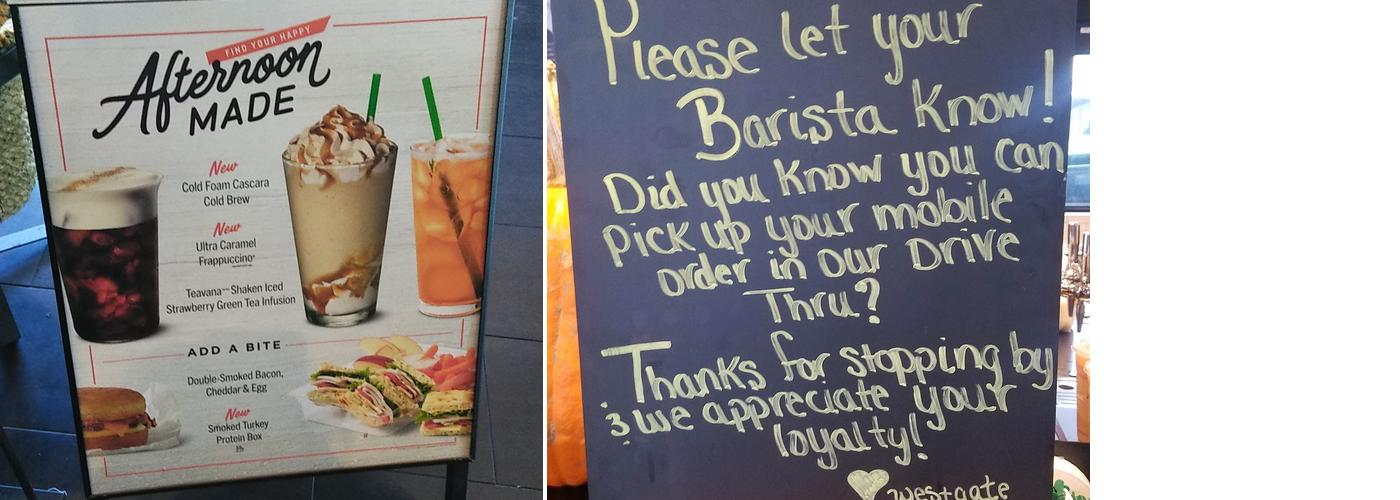 FIND YOUR HAPPY
Afternoon
MADE
New
Cold Foam Cascara
Cold Brew
New
Ultra Caramel
Frappuccino®
Teavana™ Shaken Iced
Strawberry Green Tea Infusion
ADD A BITE
Double-Smoked Bacon,
Cheddar & Egg
New
Smoked Turkey
Protein Box
Please let your
Barista Know!
Did you Know you can
pick up your mobile
order in our Drive
Thru?
Thanks for stopping by
& we appreciate your
loyalty!
westgate